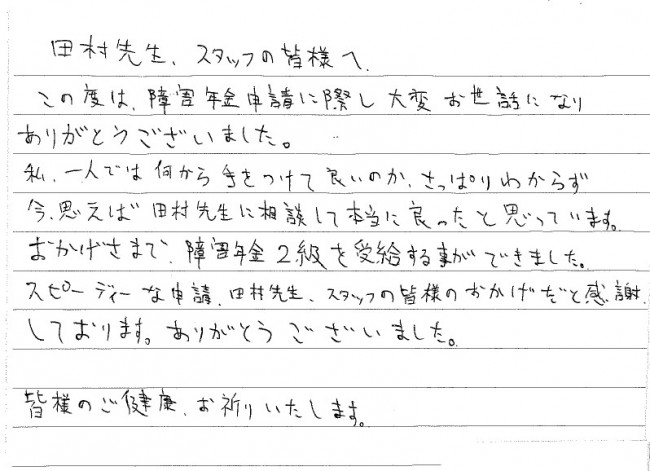 田村先生、スタッフの皆様へ.
この度は、障害年金申請に際し大変お世話になり
ありがとうございました。
私、一人では何から手をつけて良いのか、さっぱりわからず
今、思えば田村先生に相談して本当に良ったと思っています。
おかげさまで、障害年金2級を受給する事ができました。
スピーディーな申請、田村先生、スタッフの皆様のおかげだと感謝
しております。ありがとうございました。
皆様のご健康、お祈りいたします。